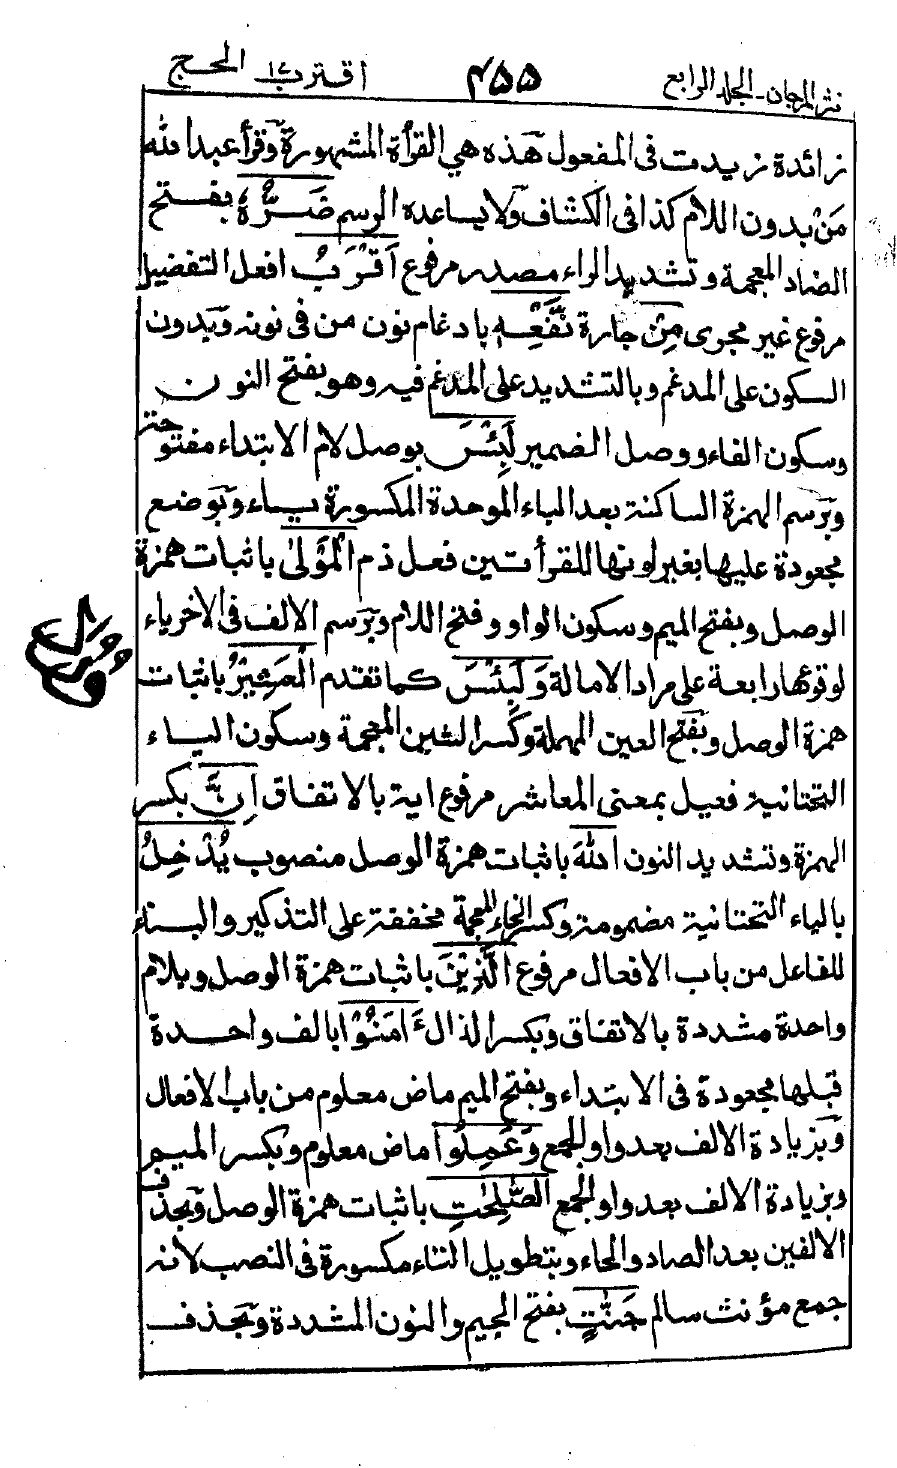 نثر المرجان ـ الجلد الرابع ٤٥٥ اقترب ١٧ الحج
زائدة زيدت فى المفعول هذه هي القرأة المشهورة وقرأ عبد الله
مَنْ بدون اللام كذا فى الكشاف ولا يساعده الرسم ضَرُّهٗ بفتح
الضاد المعجمة وتشديد الراء مصدر مرفوع اَقْرَبُ افعل التفضيل
مرفوع غير مجرى مِنْ جارة نَّفْعِهٖ بادغام نون من فى نونه وبدون
السكون على المدغم وبالتشديد على المدغم فيه وهو بفتح النون
وسكون الفاء ووصل الضمير لَبِئْسَ بوصل لام الابتداء مفتوحة
وبرسم الهمزة الساكنة بعد الباء الموحدة المكسورة ياء وبوضع
مجعودة عليها بغير لونها للقرأتين فعل ذم الْمَوْلٰى باثبات همزة
الوصل وبفتح الميم وسكون الواو وفتح اللام وبرسم الالف فى الاخر ياء
لوقوعها رابعة على مراد الامالة وَلَبِئْسَ كما تقدم الْعَشِيْرُ باثبات
همزة الوصل وبفتح العين المهملة وكسر الشين المعجمة وسكون الياء
التحتانية فعيل بمعنى المعاشر مرفوع اية بالاتفاق اِنَّ بكسر
الهمزة وتشديد النون اللّٰهَ باثبات همزة الوصل منصوب يُدْخِلُ
بالياء التحتانية مضمومة وكسر الخاء المعجمة مخففة على التذكير والبناء
للفاعل من باب الافعال مرفوع الَّذِيْنَ باثبات همزة الوصل وبلام
واحدة مشددة بالاتفاق وبكسر الذال ءَامَنُوْا بالف واحدة
قبلها مجعودة فى الابتداء وبفتح الميم ماض معلوم من باب الافعال
وبزيادة الالف بعد واو الجمع وَعَمِلُوا ماض معلوم وبكسر الميم
وبزيادة الالف بعد واو الجمع الصّٰلِحٰتِ باثبات همزة الوصل وبحذف
الالفين بعد الصاد والحاء وبتطويل التاء مكسورة فى النصب لانه
جمع مؤنث سالم جَنّٰتٍ بفتح الجيم والنون المشددة وبحذف